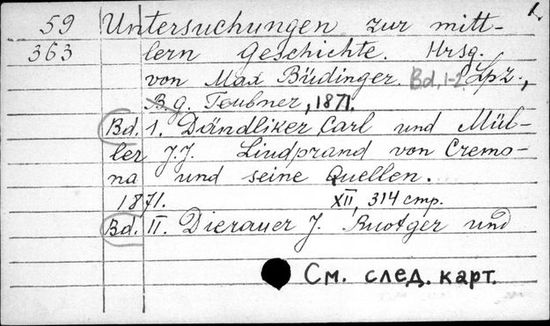 1.
59 Untersuchungen zur mitt-
363 lern Geschichte. Hrsg.
von Max Büdinger. Bd. 1-2 Lpz.,
B. g. Teubner, 1871.
Bd. 1. Dändliker, Carl und Mül-
ler J.J. Liudprand von Cremo-
na und seine Quellen.
1871. XII, 314 стр.
Bd. II. Dierauer J. Ruotger und
См. след. карт.